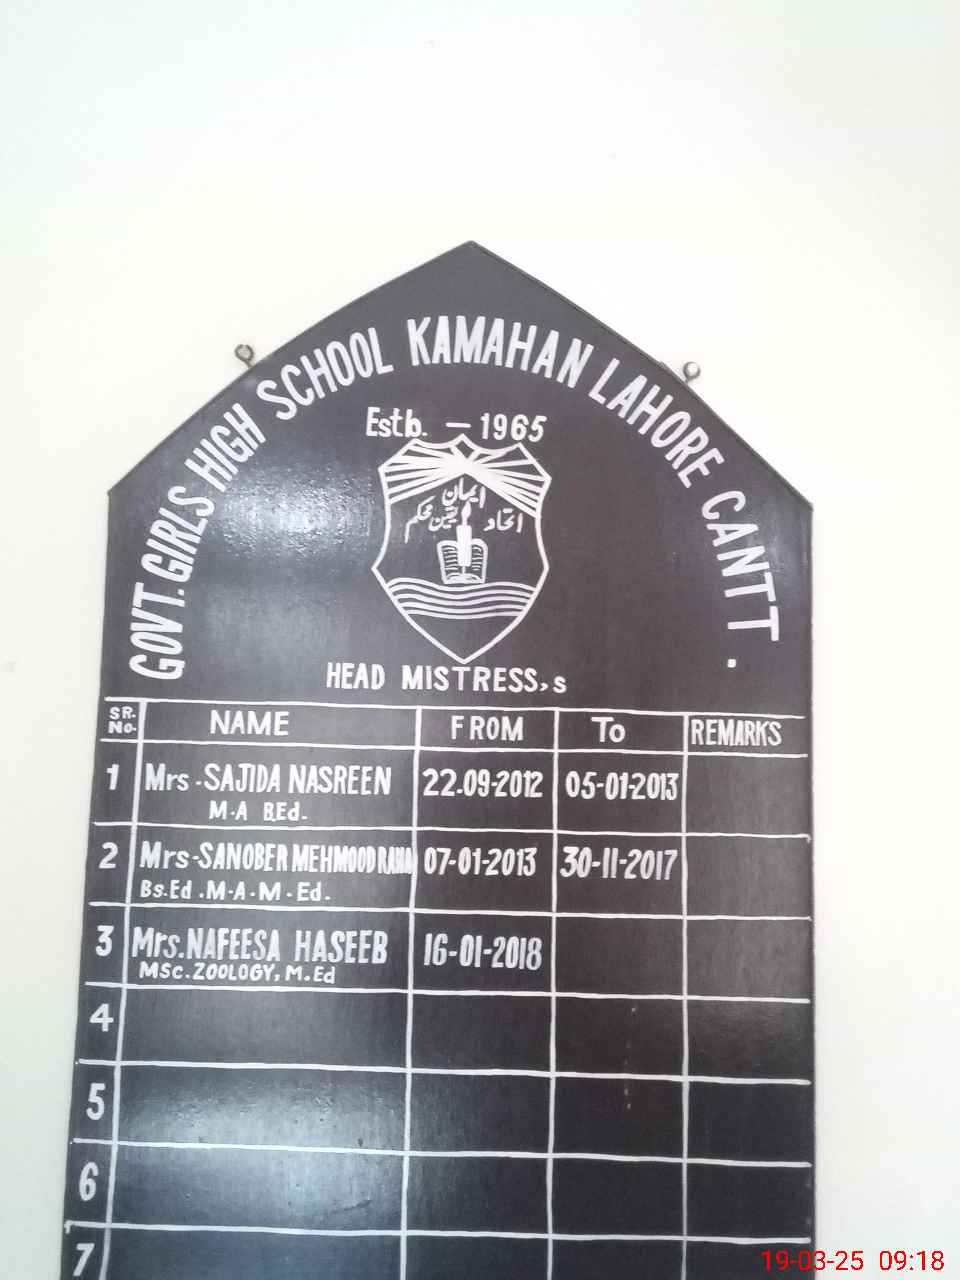 GOVT. GIRLS HIGH SCHOOL KAMAHAN LAHORE CANTT.
Estb. - 1965
ایمان
اتحاد یقین محکم
HEAD MISTRESS,s
SR. No. NAME FROM To REMARKS
1 Mrs. SAJIDA NASREEN 22.09-2012 05-01-2013
M.A B.Ed.
2 Mrs-SANOBER MEHMOOD RANA 07-01-2013 30-11-2017
Bs.Ed.M.A.M.Ed.
3 Mrs.NAFEESA HASEEB 16-01-2018
MSc.ZOOLOGY, M.Ed
4
5
6
7
19-03-25 09:18